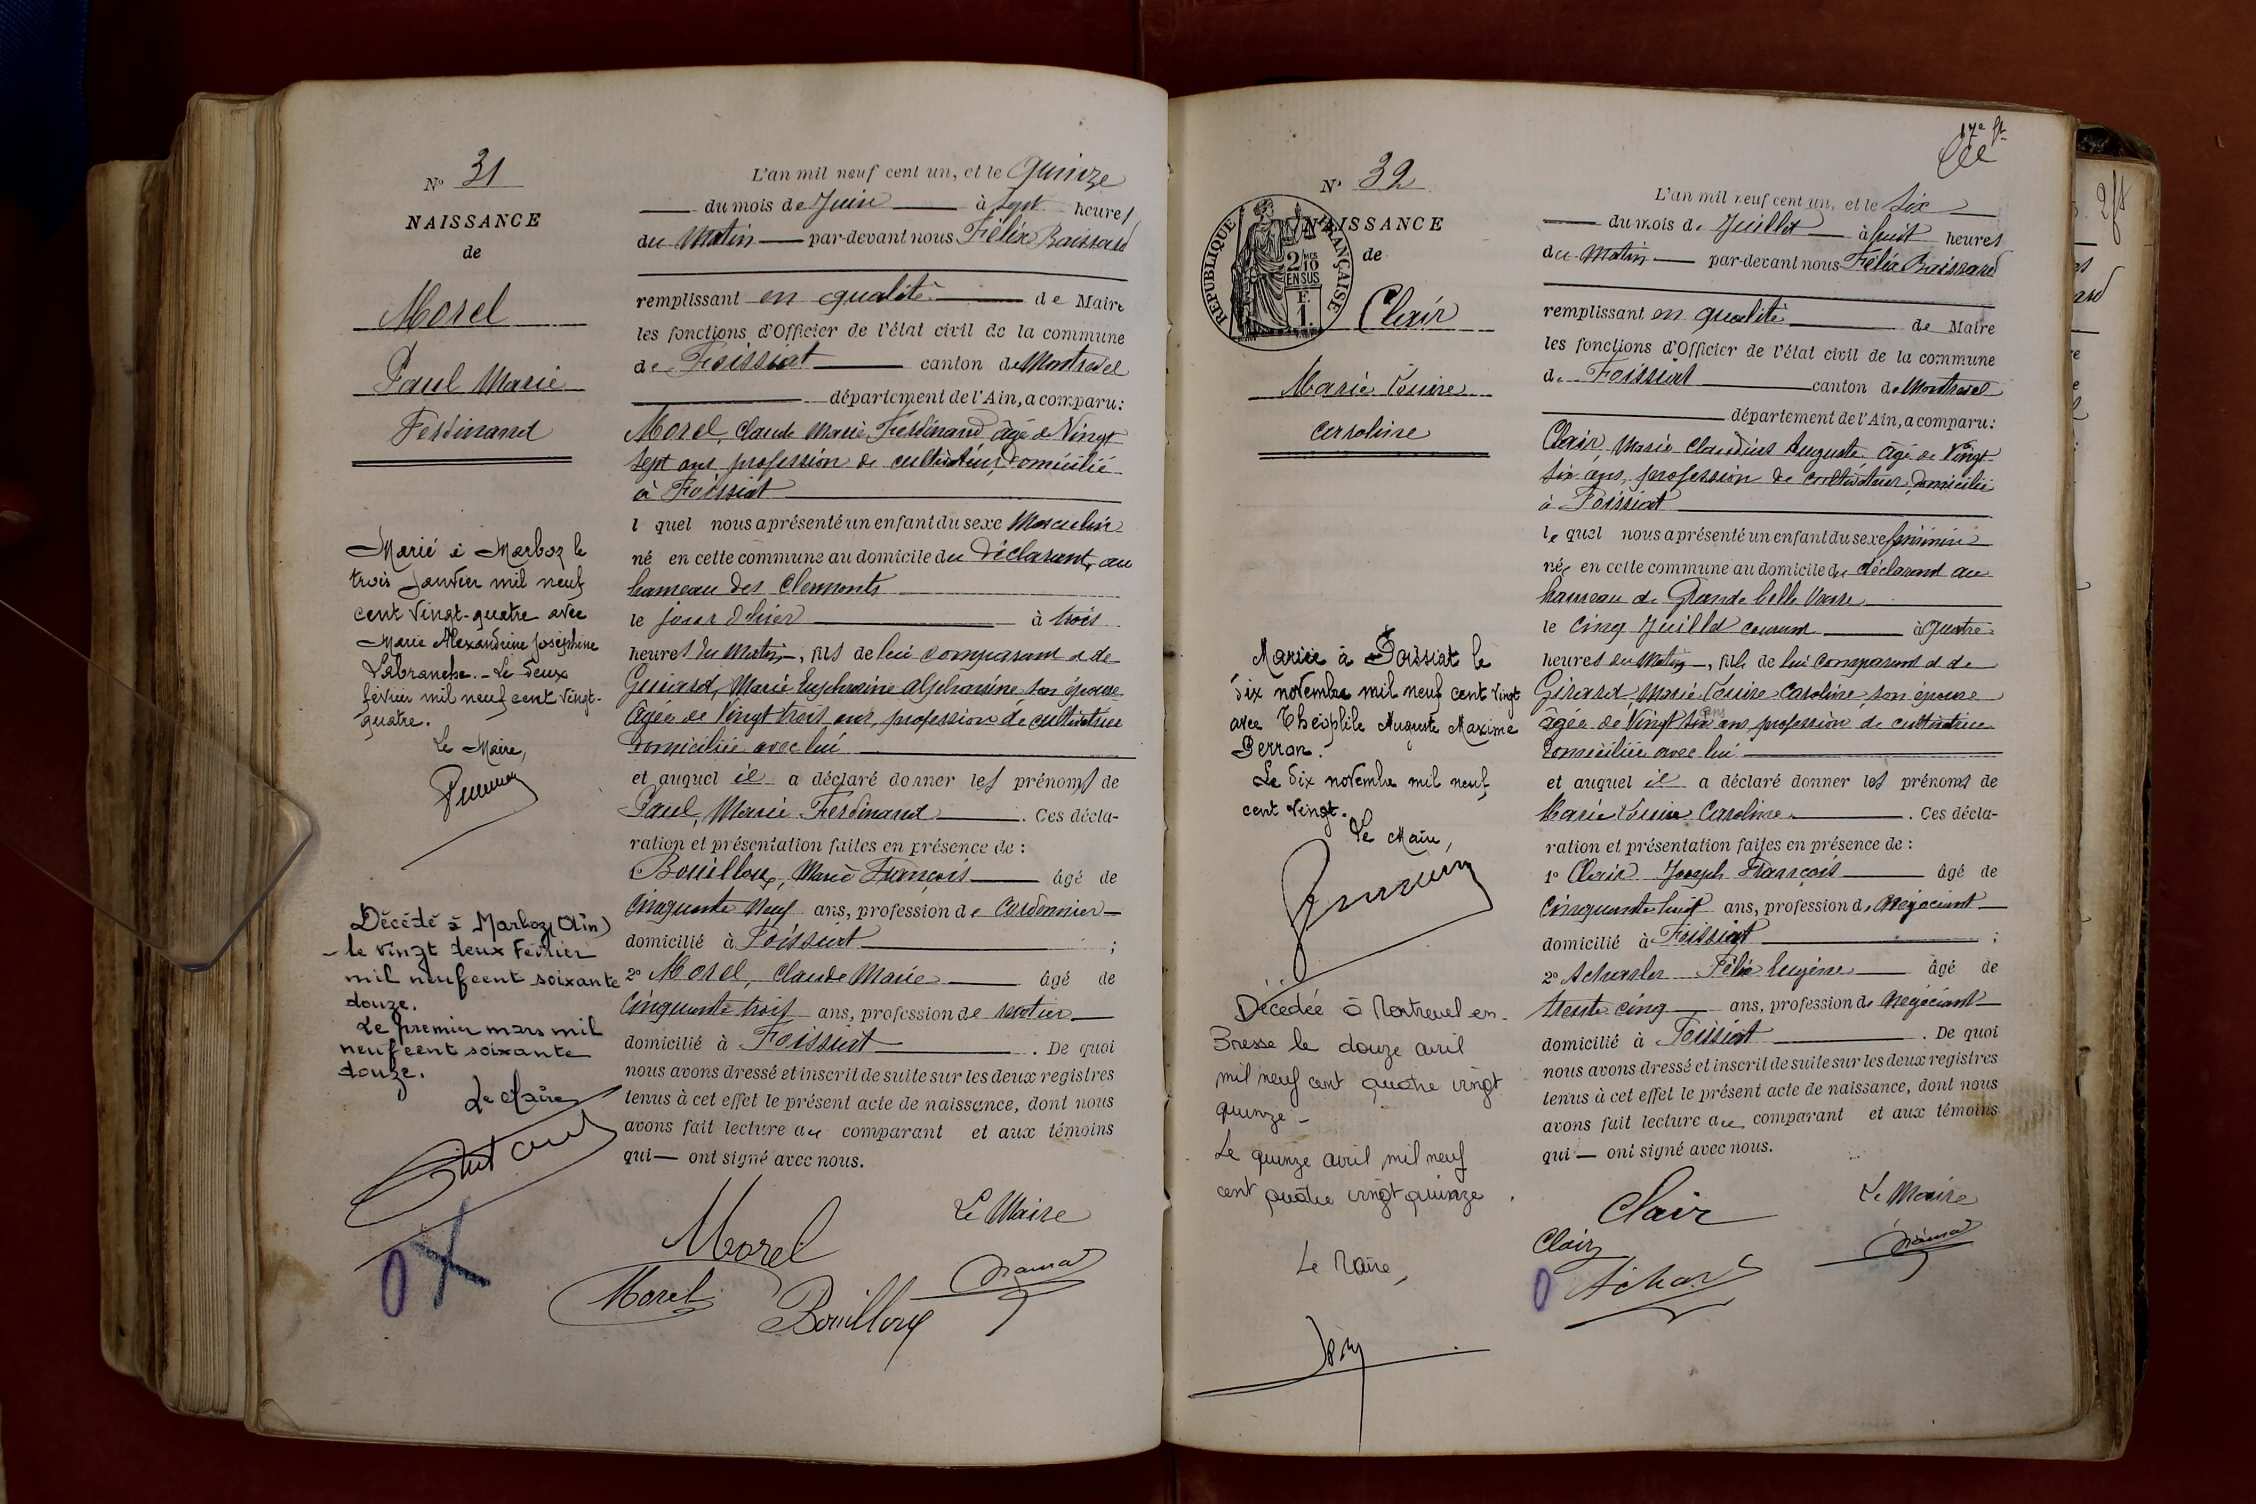 N° 31
NAISSANCE
de
Morel
Paul Marie
Ferdinand
Marié à Marboz le
trois Janvier mil neuf
cent vingt-quatre avec
Marie Alexandrine Joséphine
Labranche. - Le deux
février mil neuf cent vingt-
quatre.
Le Maire,
Décédé à Marboz (Ain)
le vingt deux Février
mil neuf cent soixante
douze.
Le premier mars mil
neuf cent soixante
douze.
Le Maire
L'an mil neuf cent un, et le Quinze
du mois de Juin à sept heures
du Matin par-devant nous Félix Baissard
remplissant en qualité de Maire
les fonctions d'Officier de l'état civil de la commune
de Foissiat canton de Montrevel
département de l'Ain, a comparu:
Morel, Claude Marie Ferdinand, âgé de Vingt
sept ans profession de cultivateur, domicilié
à Foissiat
l quel nous a présenté un enfant du sexe Masculin
né en cette commune au domicile du déclarant, au
hameau des Clermonts
le jour d'hier à trois
heures du Matin, fils de lui comparant et de
Marie Euphrasine Alphonsine son épouse
âgée de Vingt trois ans, profession de cultivatrice
domiciliée avec lui
et auquel il a déclaré donner les prénoms de
Paul, Marie Ferdinand. Ces décla-
ration et présentation faites en présence de :
Bouilloux, Marie François âgé de
cinquante neuf ans, profession de Cordonnier
domicilié à Foissiat ;
2° Morel, Claude Marie âgé de
cinquante trois ans, profession de rentier
domicilié à Foissiat. De quoi
nous avons dressé et inscrit de suite sur les deux registres
tenus à cet effet le présent acte de naissance, dont nous
avons fait lecture au comparant et aux témoins
qui ont signé avec nous.
Morel
Le Maire
Morel
Bouilloux
N° 32
NAISSANCE
de
RÉPUBLIQUE FRANÇAISE
2/10
EN SUS
F.
1.
Clair
Marie Louise
Caroline
Mariée à Foissiat le
dix novembre mil neuf cent vingt
avec Théophile Auguste Maxime
Perran.
Le dix novembre mil neuf
cent vingt.
Le Maire,
Décédée à Montrevel en
Bresse le douze avril
mil neuf cent quatre vingt
quinze -
Le quinze avril mil neuf
cent quatre vingt quinze.
Le Maire,
17e ft
L'an mil neuf cent un, et le Six
du mois de Juillet à huit heures
du Matin par-devant nous Félix Baissard
remplissant en qualité de Maire
les fonctions d'Officier de l'état civil de la commune
de Foissiat canton de Montrevel
département de l'Ain, a comparu:
Clair, Marie Claudius Auguste âgé de Vingt
six ans, profession de cultivateur, domicilié
à Foissiat
le quel nous a présenté un enfant du sexe féminin
née en cette commune au domicile du déclarant au
hameau de Grande belle
le cinq Juillet courant à Quatre
heures du Matin, fille de lui comparant et de
Girard, Marie Louise Caroline, son épouse
âgée de Vingt six ans profession de cultivatrice
domiciliée avec lui
et auquel il a déclaré donner les prénoms de
Marie Louise Caroline. Ces décla-
ration et présentation faites en présence de :
1° Clair Joseph François âgé de
cinquante huit ans, profession de Négociant
domicilié à Foissiat ;
2° Félix Eugène âgé de
trente cinq ans, profession de Négociant
domicilié à Foissiat. De quoi
nous avons dressé et inscrit de suite sur les deux registres
tenus à cet effet le présent acte de naissance, dont nous
avons fait lecture au comparant et aux témoins
qui ont signé avec nous.
Clair
Le Maire
Clair